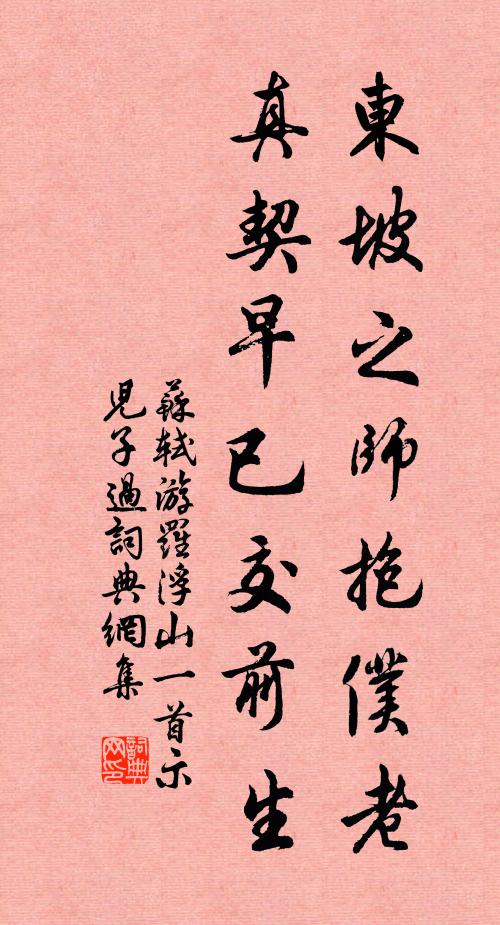 東坡之師抱僕老
真契早已交前生
蘇軾游羅浮山一首示
兒子過詞典網集
詞典
网印